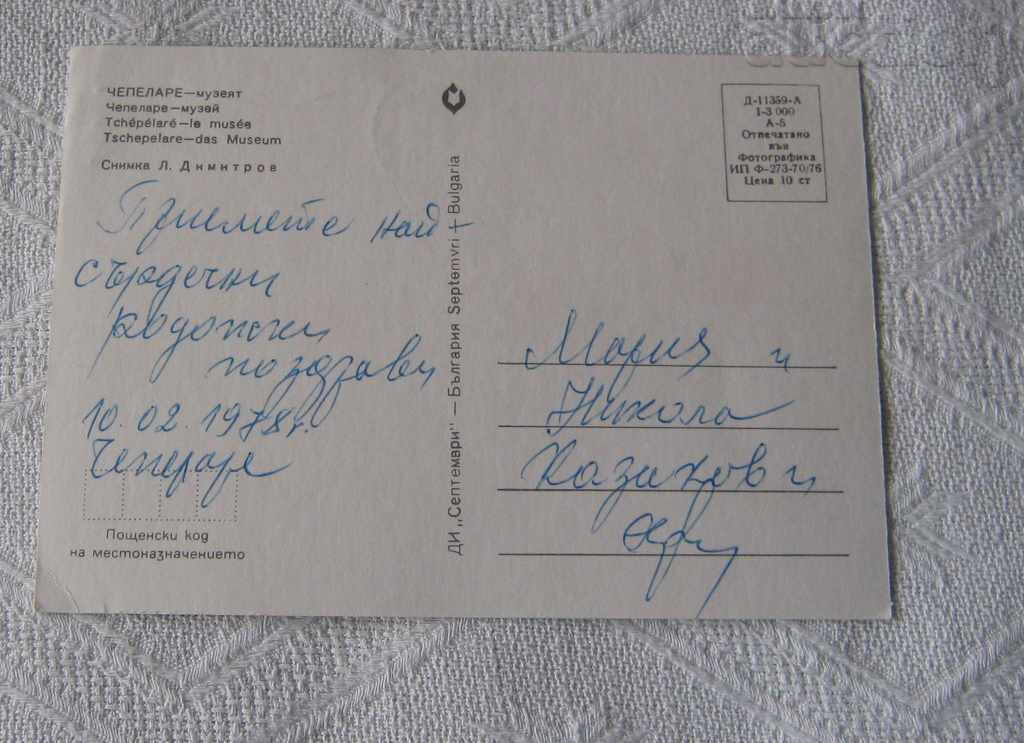 ЧЕПЕЛАРЕ—музеят
Чепеларе—музей
Tchépélaré—le musée
Tschepelare—das Museum
Снимка Л. Димитров
Приемете най-
сърдечни
родопски
поздрави
10.02.1978г.
Чепеларе
Пощенски код
на местоназначението
ДИ „Септември" — България Septemvri + Bulgaria
Д-11359-А
1-3 000
А-5
Отпечатано
във
Фотографика
ИП Ф-273-70/76
Цена 10 ст
Мария и
Никола
Казакови